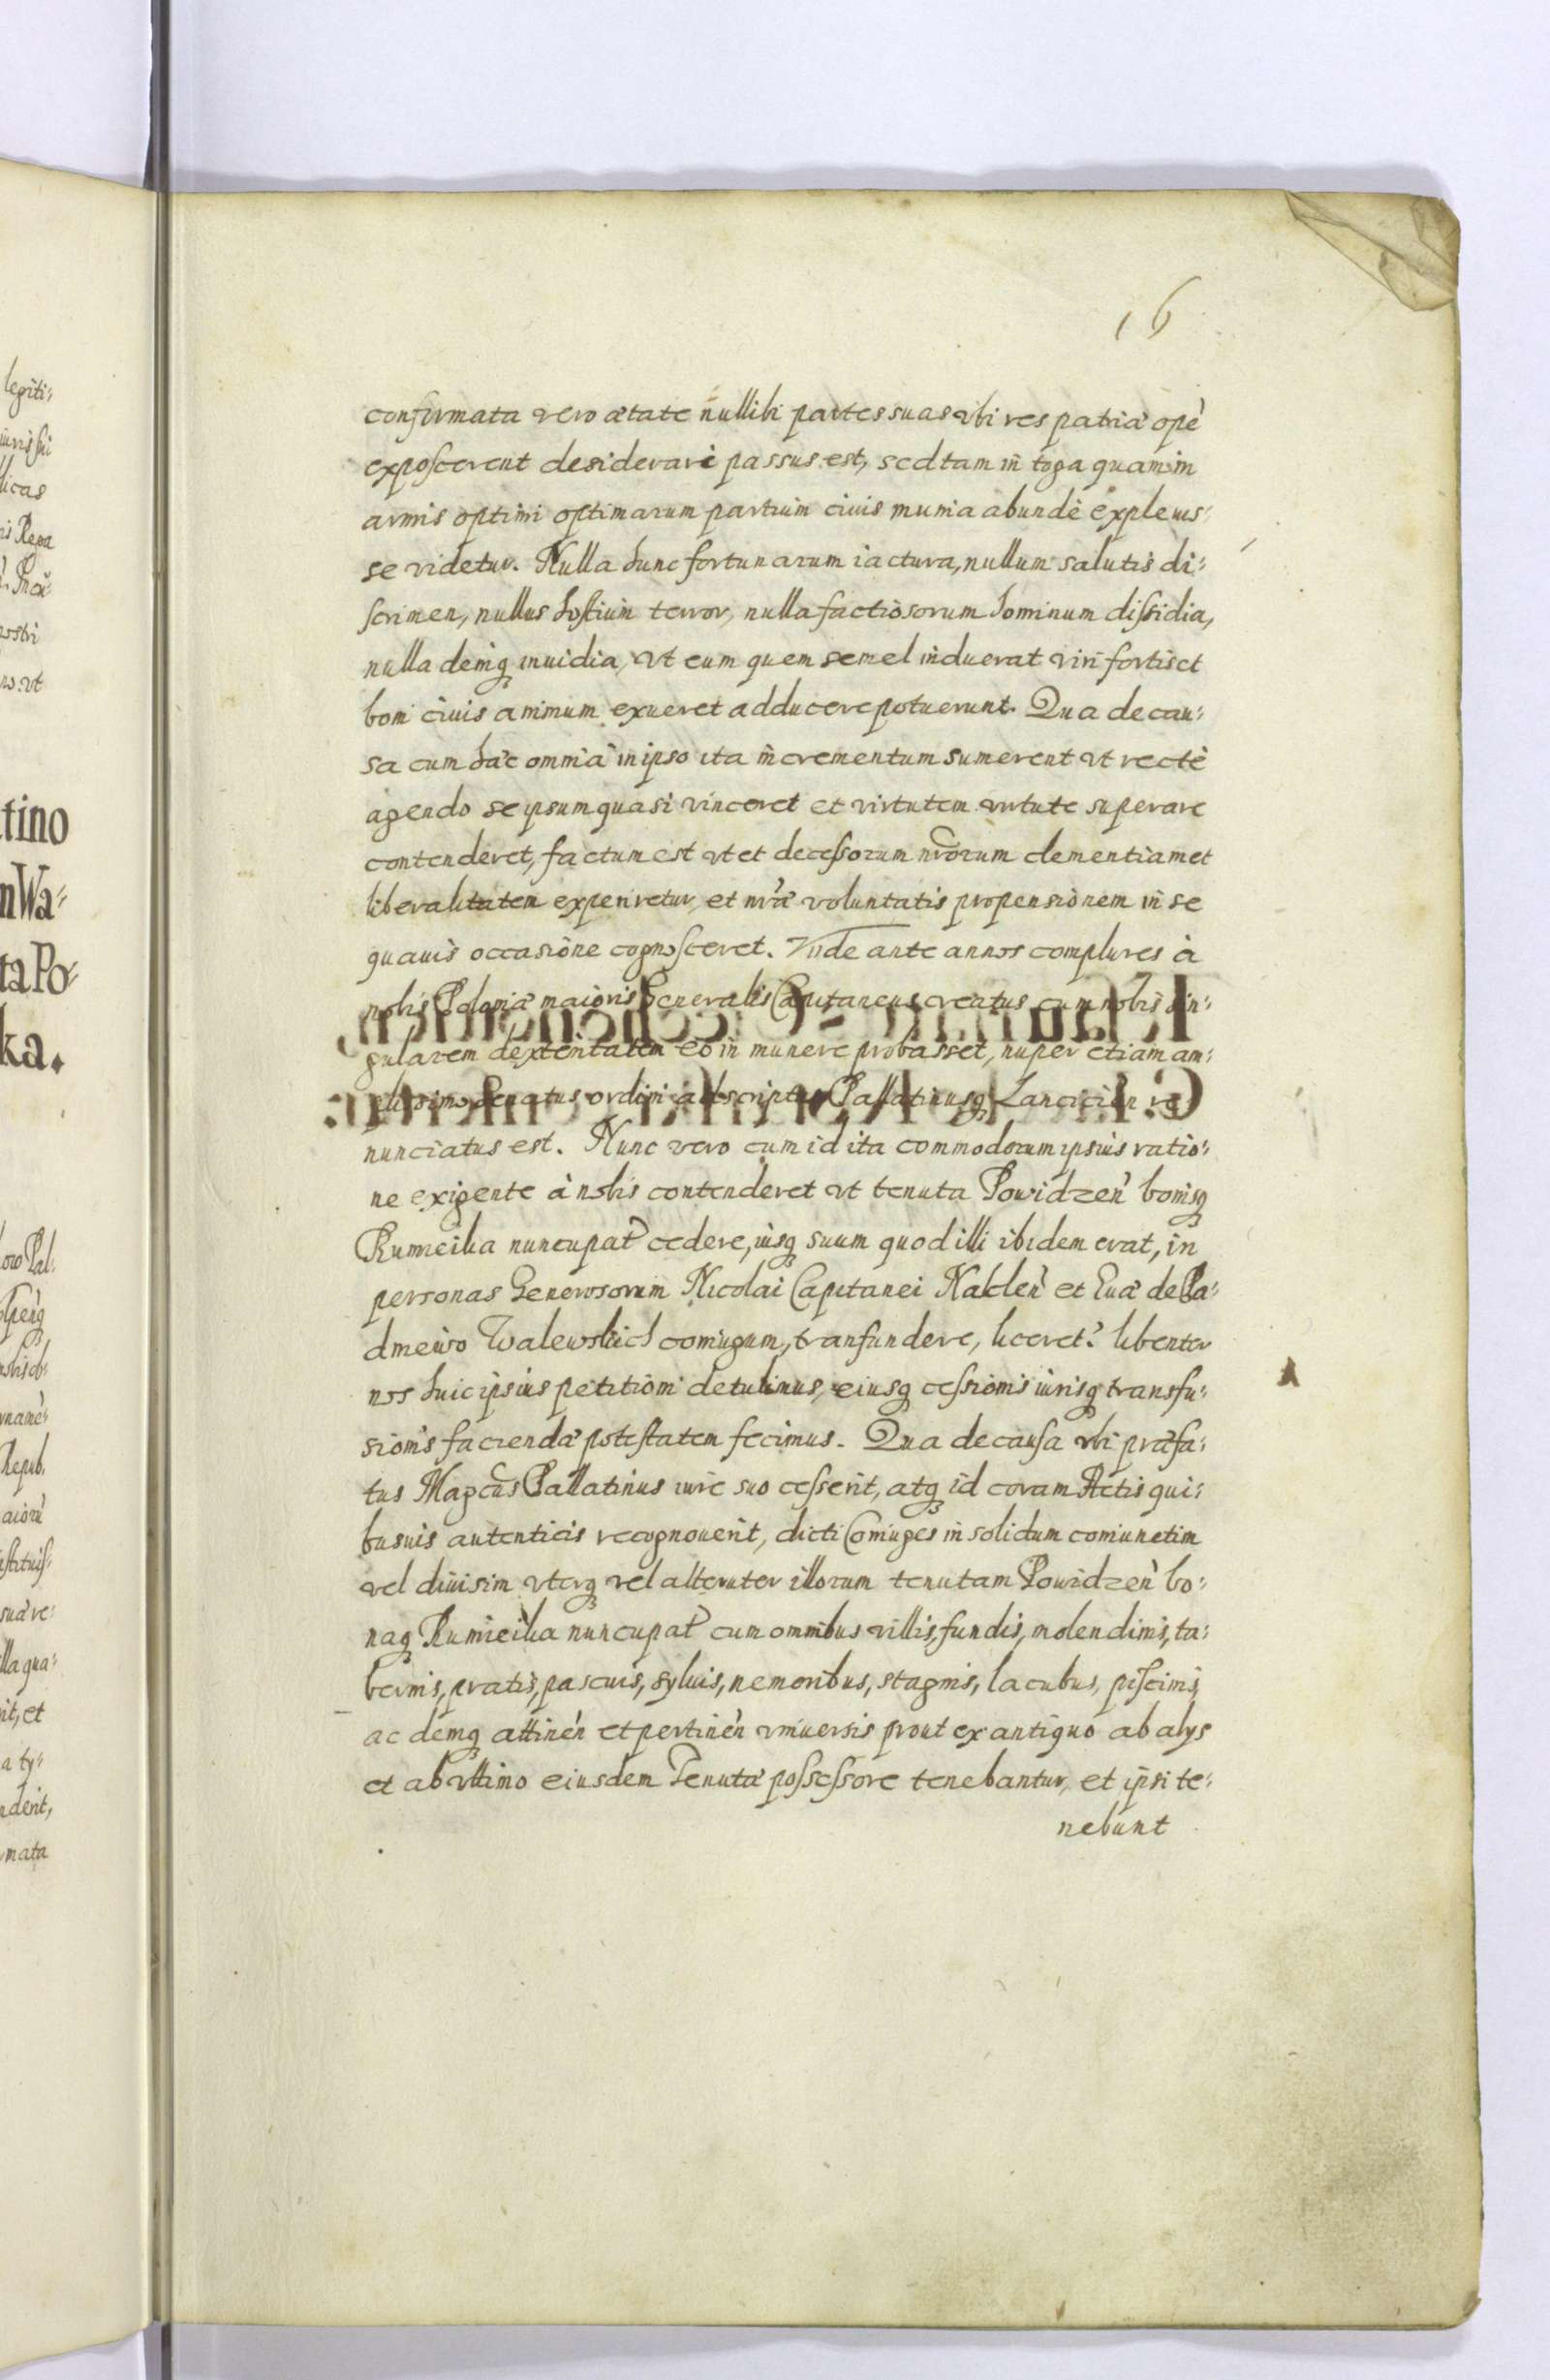 16
confirmata vero ætate nullibi partes suas vbi res patriæ opè
exposcerent desiderari passus est, sed tam in toga quam in
armis optimi optimarum partium ciuis munia abundè expleuis:
se videtur. Nulla hunc fortunarum iactura, nullum salutis di:
scrimen, nullus hostium terror, nulla factiosorum hominum dissidia,
nulla deniq inuidia, vt eum quem semel induerat viri fortis et
boni ciuis animum exueret adducere potuerunt. Qua de cau:
sa cum hæc omnia in ipso ita incrementum sumerent vt rectè
agendo se ipsum quasi vinceret et virtutem virtute superare
contenderet, factum est vt et decessorum nrorum clementiam et
liberalitatem experiretur, et nræ voluntatis propensionem in se
quauis occasione cognosceret. Vnde ante annos complures à
nobis Poloniæ maioris Generalis Capitaneus creatus cum nobis sin:
gularem dexteritatem eo in munere probasset, nuper etiam am:
plissimo Senatus ordini adscriptus Pallatinusq Lancicien re
nunciatus est. Nunc vero cum id ita commodorum ipsius ratio:
ne exigente à nobis contenderet vt tenuta Powidzen bonisq
Rumieika nuncupat cedere, iusq suum quod illi ibidem erat, in
personas Generosorum Nicolai Capitanei Naklen et Euæ de Ra:
dmeiro Walewskich coniugum, transfundere, liceret? libenter
nos huic ipsius petitioni detulimus, eiusq cessionis iurisq transfu:
sionis faciendæ potestatem fecimus. Qua de causa vbi præfa:
tus Magcus Pallatinus iure suo cesserit, atq id coram Actis qui:
busuis autenticis recognouerit, dicti Coniuges in solidum coniunctim
vel diuisim vterq vel alteruter illorum tenutam Powidzen bo:
naq Rumieika nuncupat cum omnibus villis, fundis, molendinis, ta:
bernis, pratis, pascuis, syluis, nemoribus, stagnis, lacubus, piscinis,
ac deniq attinen et pertinen vniuersis prout ex antiquo ab alys
et ab vltimo eiusdem Tenutæ possessore tenebantur, et ipsi te:
nebunt